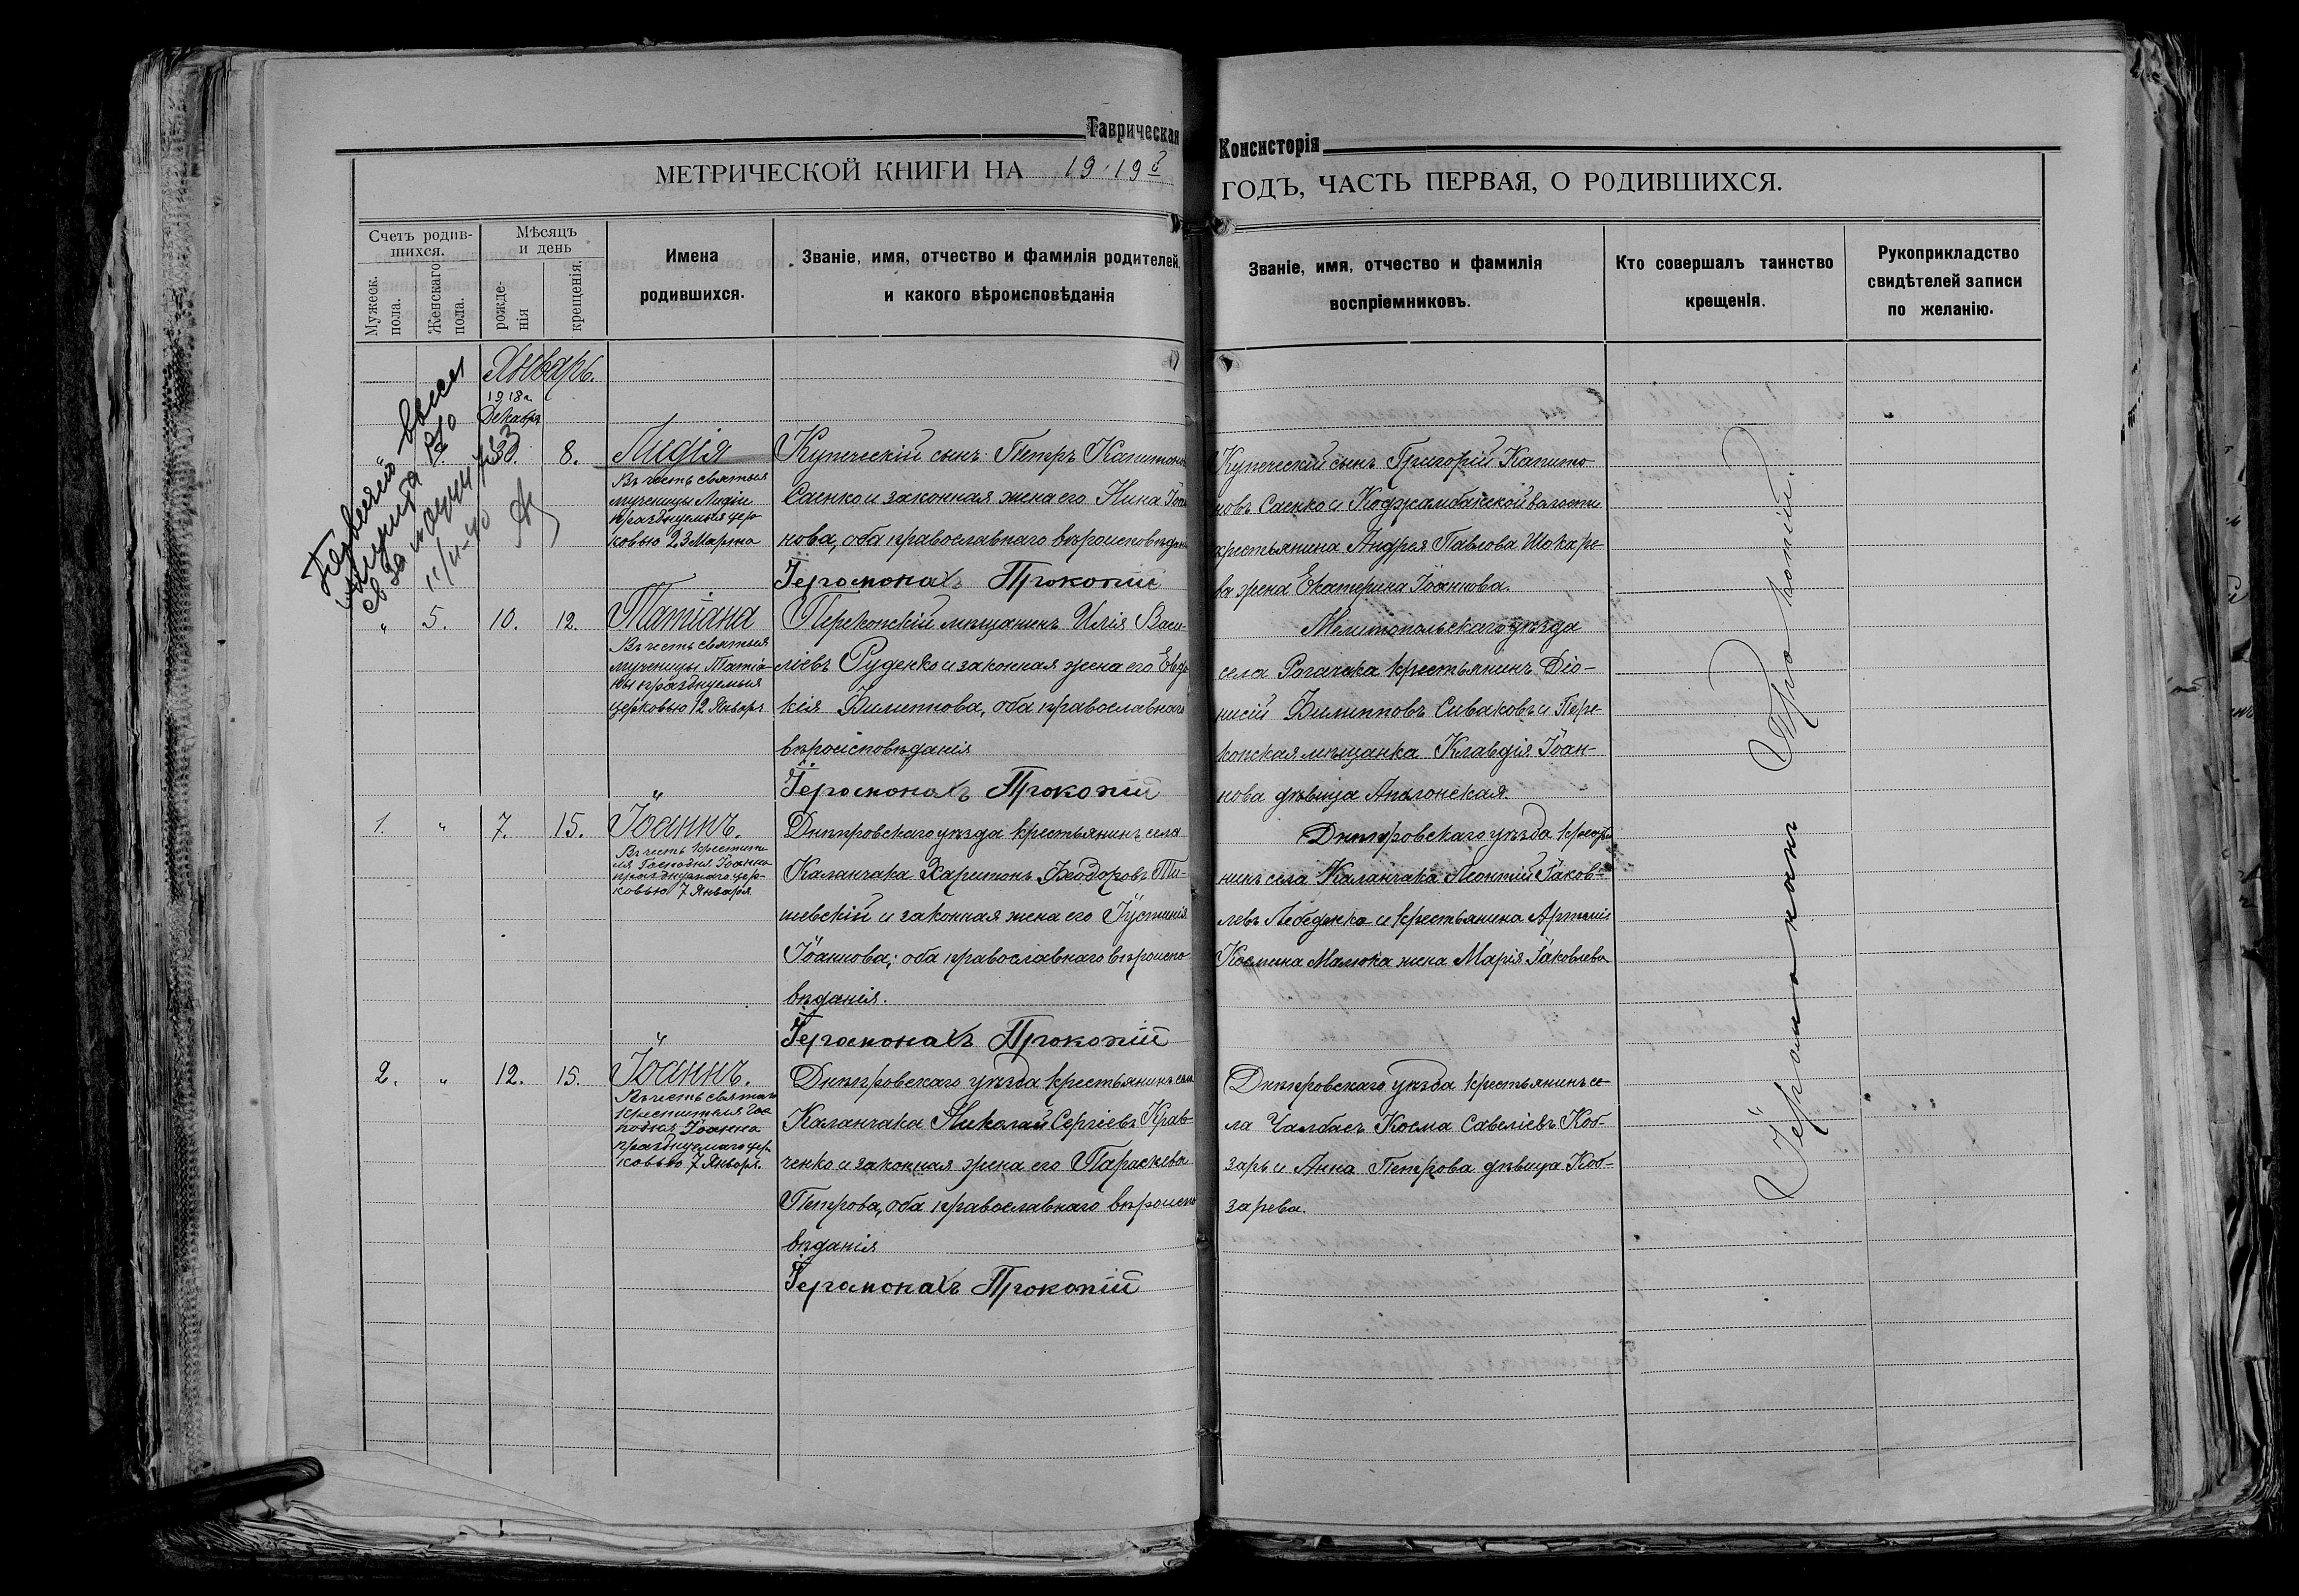 Таврическая
Консисторія
МЕТРИЧЕСКОЙ КНИГИ НА 1919
ГОДЪ, ЧАСТЬ ПЕРВАЯ, О РОДИВШИХСЯ.
Счетъ родив-
шихся.
Мужеск. пола.
Женскаго пола.
Мѣсяцъ
и день
рожде-
нія
крещенія.
Имена
родившихся.
Званіе, имя, отчество и фамилія родителей,
и какого вѣроисповѣданія
Званіе, имя, отчество и фамилія
воспріемниковъ.
Кто совершалъ таинство
крещенія.
Рукоприкладство
свидѣтелей записи
по желанію.
Январь.
1918г.
Декабря
8.
Лидія
Въ честь святыя
мученицы Лидіи
празднуемыя цер-
ковью 23 Марта
Купеческій сынъ Петръ Капитоно
Саенко и законная жена его Нина Іоан
нова, оба православнаго вѣроисповѣдан
Іеромонахъ Прокопій
Купеческій сынъ Григорій Капито
новъ Саенко и волости
крестьянина Андрея Павлова
ва жена Екатерина Іоаннова.
11/II-40
" 5. 10. 12.
Татіана
Въ честь святыя
мученицы Татіа-
ны празднуемыя
церковью 12 Января
Перекопскій мѣщанинъ Илія Васи-
ліевъ Руденко и законная жена его Евдо
кія Филиппова, оба православнаго
вѣроисповѣданія
Іеромонахъ Прокопій
Мелитопольскаго уѣзда
села Рогачика крестьянинъ Діо-
нисій Филипповъ Сиваковъ и Пере-
копская мѣщанка Клавдія Іоан-
нова дѣвица
1. " 7. 15.
Іоаннъ.
Въ честь крестите
ля Господня Іоанна
празднуемаго цер-
ковью 7 Января
Днѣпровскаго уѣзда крестьянинъ села
Каланчака Харитонъ Феодоровъ Ти-
шевскій и законная жена его Іустинія
Іоаннова, оба православнаго вѣроиспо
вѣданія.
Іеромонахъ Прокопій
Днѣпровскаго уѣзда крестья
нинъ села Каланчака Леонтій Іаков-
левъ Лебедько и крестьянина Артемія
Космина Малюка жена Марія Іаковлева
2. " 12. 15.
Іоаннъ.
Въ честь святаго
крестителя Гос
подня Іоанна
празднуемаго цер
ковью 7 Января.
Днѣпровскаго уѣзда крестьянинъ села
Каланчака Николай Сергіевъ Крав-
ченко и законная жена его Параскева
Петрова, оба православнаго вѣроиспо
вѣданія
Іеромонахъ Прокопій
Днѣпровскаго уѣзда крестьянинъ се-
ла Чалбасъ Косма Савеліевъ Коб-
зарь и Анна Петрова дѣвица Коб-
зарева.
Іеромонахъ Прокопій.